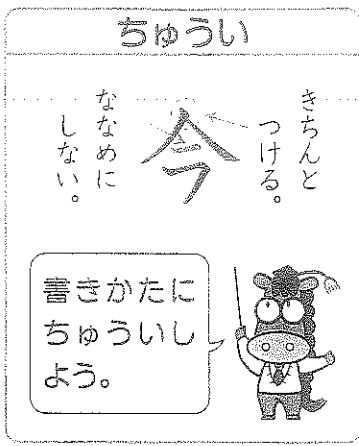 ちゅうい
きちんと
つける。
今
ななめに
しない。
書きかたに
ちゅういし
よう。